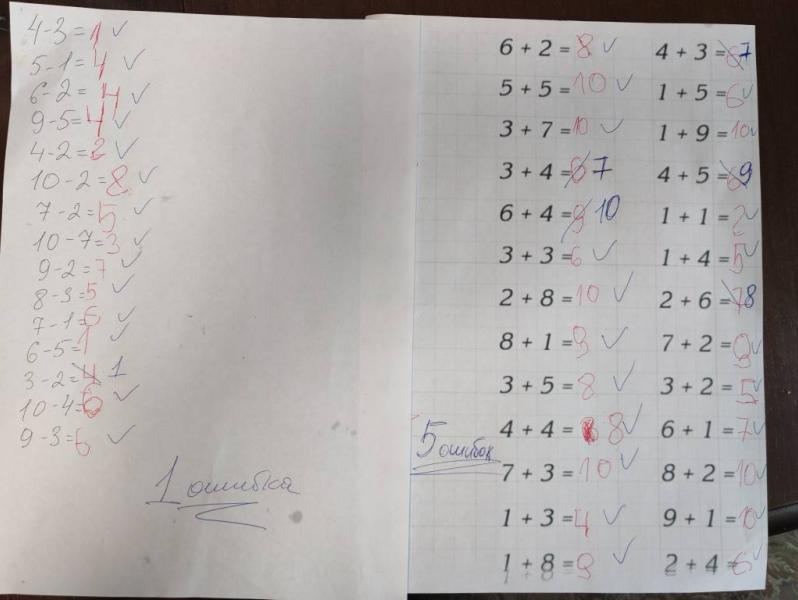 4-3=1 ✓
5-1=4 ✓
6-2=4 ✓
9-5=4 ✓
4-2=2 ✓
10-2=8 ✓
7-2=5 ✓
10-7=3 ✓
9-2=7 ✓
8-3=5 ✓
7-1=6 ✓
6-5=1 ✓
3-2=4 1
10-4=6 ✓
9-3=6 ✓
1 ошибка
6 + 2 = 8 ✓
5 + 5 = 10 ✓
3 + 7 = 10 ✓
3 + 4 = 6 7
6 + 4 = 9 10
3 + 3 = 6 ✓
2 + 8 = 10 ✓
8 + 1 = 9 ✓
3 + 5 = 8 ✓
4 + 4 = 8 ✓
7 + 3 = 10 ✓
1 + 3 = 4 ✓
1 + 8 = 9 ✓
5 ошибок
4 + 3 = 6 7
1 + 5 = 6 ✓
1 + 9 = 10 ✓
4 + 5 = 9
1 + 1 = 2 ✓
1 + 4 = 5 ✓
2 + 6 = 7 8
7 + 2 = 9 ✓
3 + 2 = 5 ✓
6 + 1 = 7 ✓
8 + 2 = 10 ✓
9 + 1 = 10 ✓
2 + 4 = 6 ✓